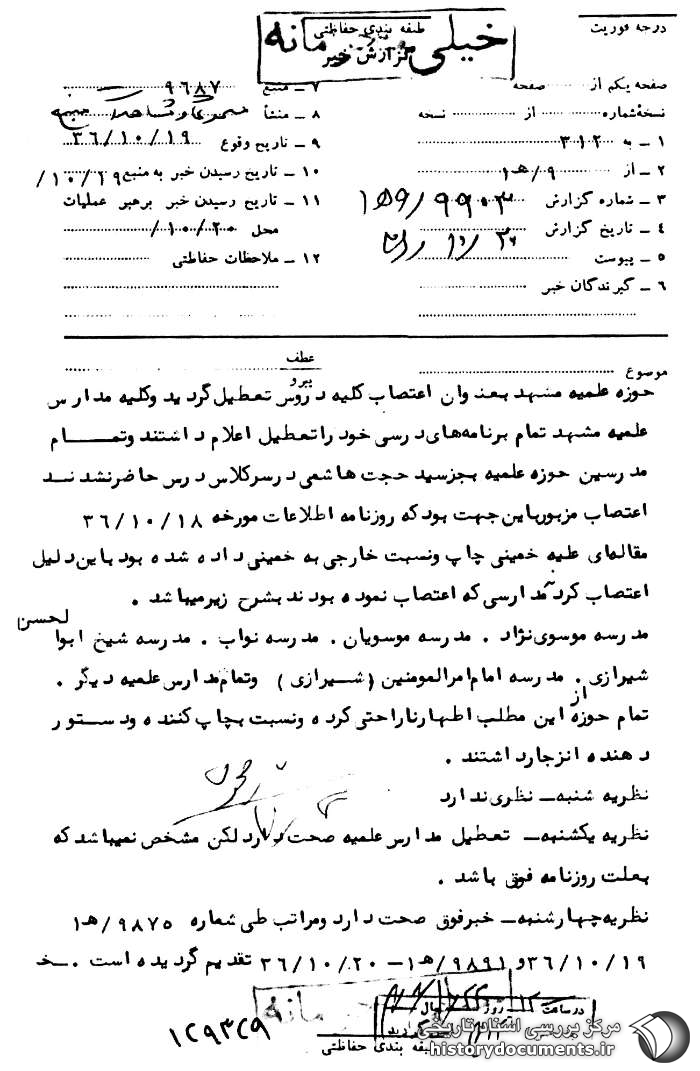 درجه فوریت
طبقه بندی حفاظتی
خیلی محرمانه
گزارش خبر
صفحه یکم از صفحه
نسخه‌شماره از نسخه
۱ ـ به ۳۱۲
۲ ـ از ۹/هـ۱
۳ ـ شماره گزارش
٤ ـ تاریخ گزارش
٥ ـ پیوست
٦ ـ گیرندگان خبر
۷ ـ منبع ۹۶۸۷
۸ ـ منشأ
۹ ـ تاریخ وقوع ۳۶/۱۰/۱۹
۱۰ ـ تاریخ رسیدن خبر به منبع ۱۰/۱۹/
۱۱ ـ تاریخ رسیدن خبر برهبر عملیات
محل ۱۰/۲۰/
۱۲ ـ ملاحظات حفاظتی
موضوع
عطف
پیرو
حوزه علمیه مشهد بعنوان اعتصاب کلیه دروس تعطیل گردید وکلیه مدارس
علمیه مشهد تمام برنامه‌های درسی خود را تعطیل اعلام داشتند وتمام
مدرسین حوزه علمیه بجز سید حجت هاشمی در سر کلاس درس حاضر نشدند
اعتصاب مزبور باین جهت بود که روزنامه اطلاعات مورخه ۳۶/۱۰/۱۸
مقاله‌ای علیه خمینی چاپ ونسبت خارجی به خمینی داده شده بود باین دلیل
اعتصاب کردند مدارسی که اعتصاب نموده بودند بشرح زیر میباشد .
مدرسه موسوی نژاد . مدرسه موسویان . مدرسه نواب . مدرسه شیخ ابوالحسن
شیرازی . مدرسه امام امرالمومنین (شیرازی) وتمام مدارس علمیه دیگر .
تمام حوزه از این مطلب اظهار ناراحتی کرده ونسبت بچاپ کننده ودستور
دهنده انزجار داشتند .
نظریه شنبه ـ نظری ندارد
نظریه یکشنبه ـ تعطیل مدارس علمیه صحت دارد لکن مشخص نمیباشد که
بعلت روزنامه فوق باشد .
نظریه چهارشنبه ـ خبر فوق صحت دارد ومراتب طی شماره ۹۸۷۵/هـ۱
۳۶/۱۰/۱۹ و ۹۸۹۱/هـ۱ ـ ۳۶/۱۰/۲۰ تقدیم گردیده است . خ
در ساعت ۱۲ روز
طبقه بندی حفاظتی
۱۲۹۳۲۹
مرکز بررسی اسناد تاریخی
historydocuments.ir